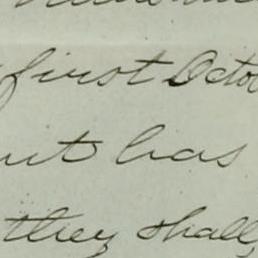 first Octo
ut has
they shall